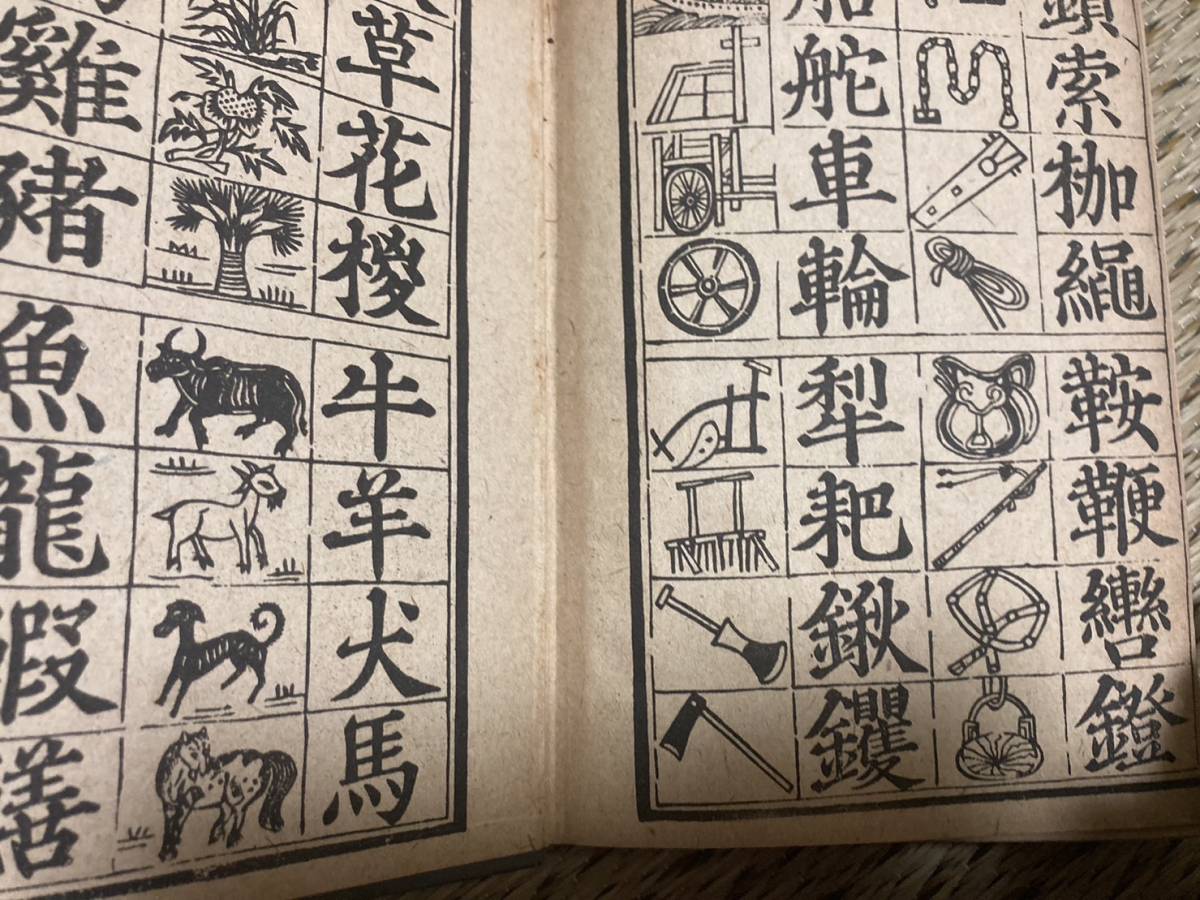 鎖索枷繩
鞍鞭轡鐙
船舵車輪
犁耙鍬钁
草花椶
牛羊犬馬
雞豬
魚龍蝦